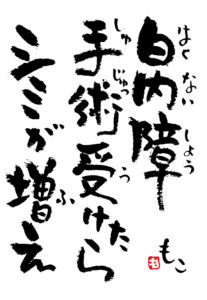 白内障
はくないしょう
手術受けたら
しゅじゅつう
シミが増え
ふ
もこ